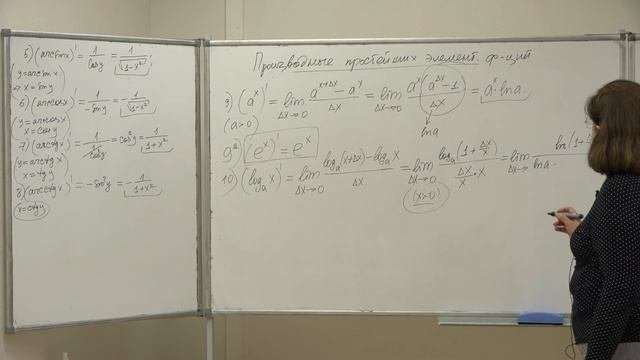 5) (arcsin x)' = 1/cos y = 1/√(1-x²);
(y=arcsin x
⇒ x=sin y)
6) (arccos x)' = 1/(-sin y) = 1/√(1-x²);
(y=arccos x
x=cos y)
7) (arctg x)' = 1/(1/cos²y) = cos²y = 1/(1+x²);
(y=arctg x
x=tg y)
8) (arcctg x)' = -sin²y = -1/(1+x²);
x=ctg y
Производные простейших элемент. ф-ций
9) (aˣ)' = lim Δx→0 (a^(x+Δx) - aˣ)/Δx = lim Δx→0 aˣ(a^Δx - 1)/Δx = aˣ·ln a.
(a>0)
ln a
9ᵃ) (eˣ)' = eˣ
10) (logₐ x)' = lim Δx→0 (logₐ(x+Δx) - logₐ x)/Δx = lim Δx→0 logₐ(1+Δx/x)/(Δx/x · x) = lim Δx→ ln(1+ ln a·
(x>0)